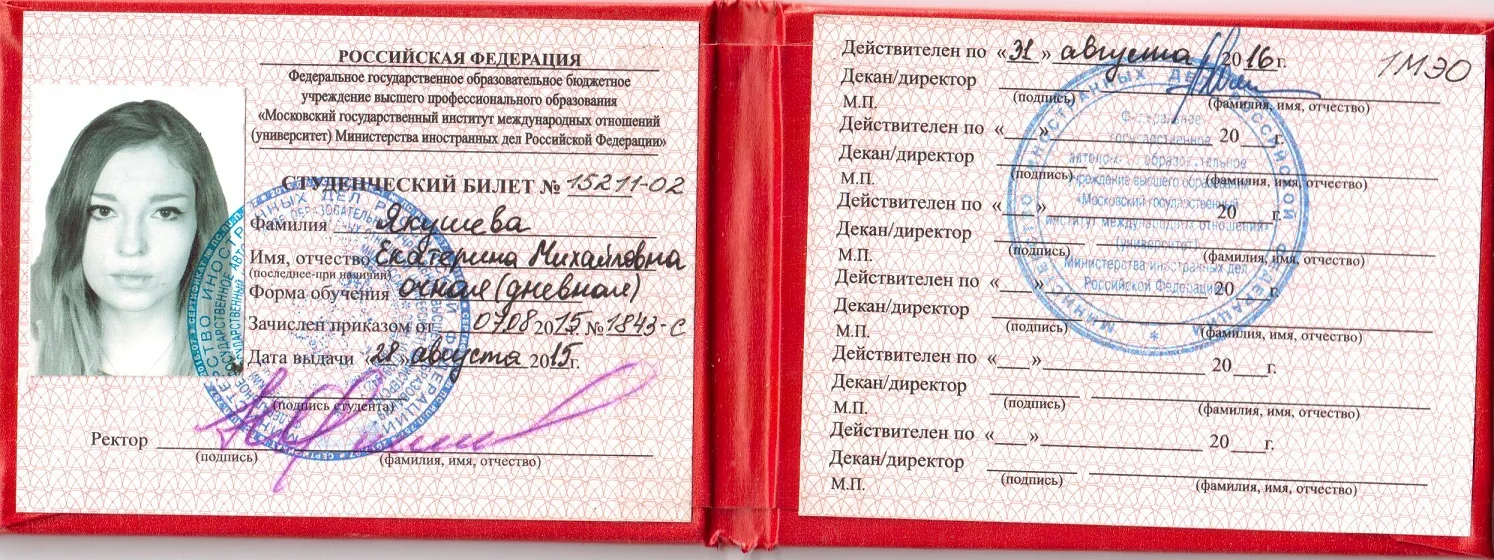 РОССИЙСКАЯ ФЕДЕРАЦИЯ
Федеральное государственное образовательное бюджетное
учреждение высшего профессионального образования
«Московский государственный институт международных отношений
(университет) Министерства иностранных дел Российской Федерации»
СТУДЕНЧЕСКИЙ БИЛЕТ № 15211-02
Фамилия Якушева
Имя, отчество Екатерина Михайловна
(последнее-при наличии)
Форма обучения очная (дневная)
Зачислен приказом от 07.08 2015 № 1843-с
Дата выдачи «28» августа 2015г.
(подпись студента)
Ректор
(подпись) (фамилия, имя, отчество)
Действителен по «31» августа 2016г.
1МЭО
Декан/директор
(подпись) (фамилия, имя, отчество)
М.П.
Действителен по «___» 20___г.
Декан/директор
(подпись) (фамилия, имя, отчество)
М.П.
Действителен по «___» 20___г.
Декан/директор
(подпись) (фамилия, имя, отчество)
М.П.
Действителен по «___» 20___г.
Декан/директор
(подпись) (фамилия, имя, отчество)
М.П.
Действителен по «___» 20___г.
Декан/директор
(подпись) (фамилия, имя, отчество)
М.П.
Действителен по «___» 20___г.
Декан/директор
(подпись) (фамилия, имя, отчество)
М.П.
Федеральное
государственное
автономное образовательное
учреждение высшего образования
«Московский государственный
институт международных отношений
(университет)
Министерства иностранных дел
Российской Федерации»